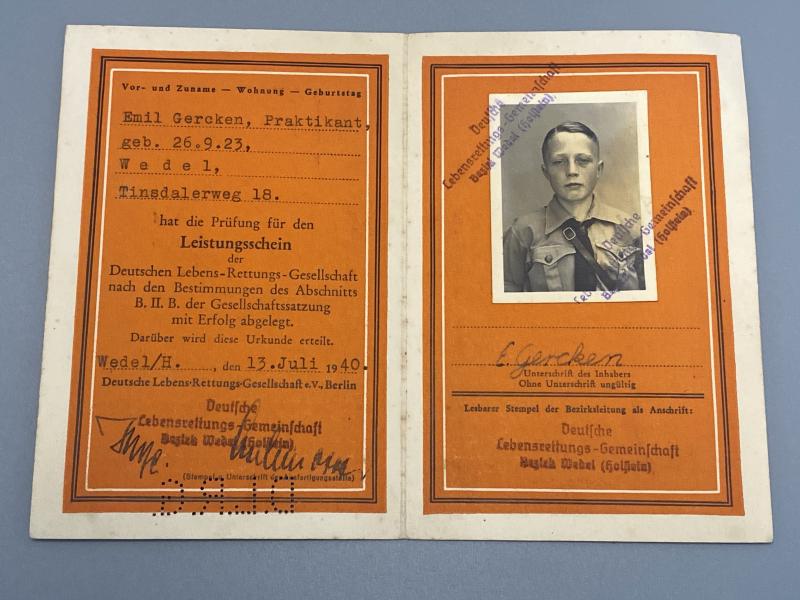 Vor- und Zuname — Wohnung — Geburtstag
Emil Gercken, Praktikant,
geb. 26.9.23,
W e d e l,
Tinsdalerweg 18.
hat die Prüfung für den
Leistungsschein
der
Deutschen Lebens-Rettungs-Gesellschaft
nach den Bestimmungen des Abschnitts
B. II. B. der Gesellschaftssatzung
mit Erfolg abgelegt.
Darüber wird diese Urkunde erteilt.
Wedel/H. , den 13.Juli 1940.
Deutsche Lebens-Rettungs-Gesellschaft e.V., Berlin
Deutsche
Lebensrettungs-Gemeinschaft
Bezirk Wedel (Holstein)
(Stempel u. Unterschrift der Ausfertigungsstelle)
D.L.R.G.
Deutsche
Lebensrettungs-Gemeinschaft
Bezirk Wedel (Holstein)
Deutsche
Gemeinschaft
(Holstein)
E. Gercken
Unterschrift des Inhabers
Ohne Unterschrift ungültig
Lesbarer Stempel der Bezirksleitung als Anschrift:
Deutsche
Lebensrettungs-Gemeinschaft
Bezirk Wedel (Holstein)